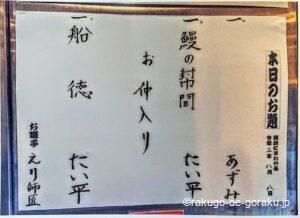 本日のお題
横浜にぎわい座
令和三年 八月 八日
一、 あずみ
一、鰻の幇間 たい平
お仲入り
一、船徳 たい平
お囃子 えり師匠
©rakugo-de-goraku.jp